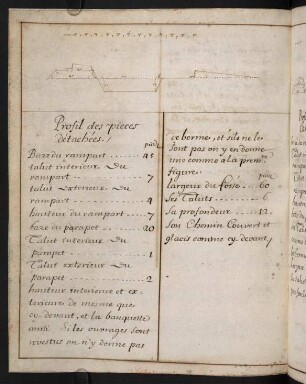 Profil des pieces
détachées./
pieds
Baze du rampart ...... 45
talut interieur Du
rampart ...... 7
talut Exterieur Du
rampart ...... 4
hauteur du rampart ... 7
baze du parapet ...... 20
Talut interieur Du
parapet ...... 1
Talut exterieur Du
parapet ...... 2
hauteur interieure et ex-
terieure de mesme que
cy devant, et la banquette
aussi. Si les ouvrages sont
revestus on n'y donne pas
ce berme, et s'ils ne le
sont pas on y en donne
une comme a la prem.re
figure.
pieds
largeur du fossé .. 60
Ses Taluts ...... 6
Sa profondeur ... 12.
Son Chemin Couvert et
glacis comme cy devant/